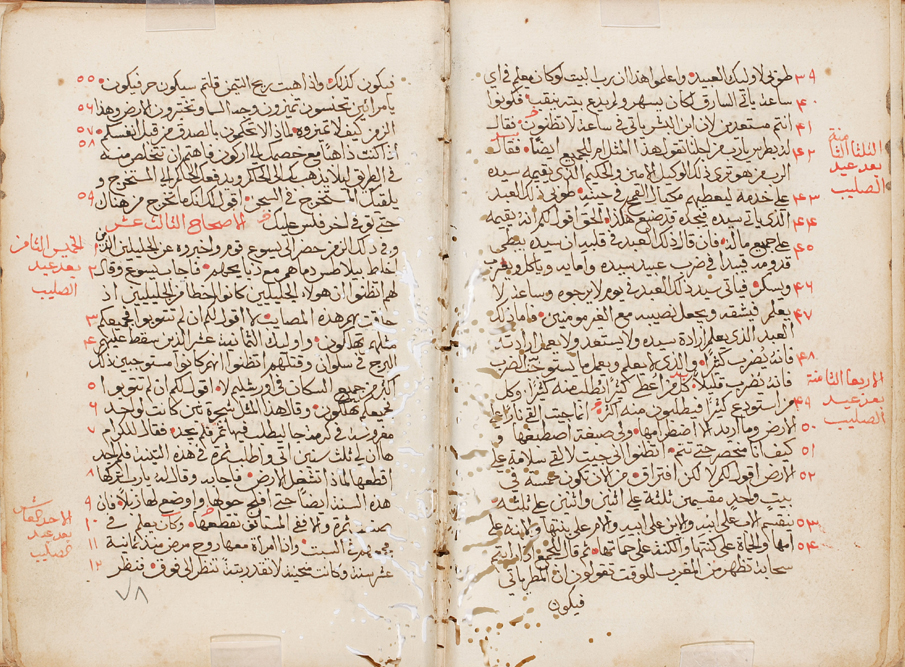 ٣٩ طوبى لاوليك العبيد واعلموا هذا ان رب البيت لو كان يعلم في اي
٤٠ ساعة ياتي السارق لكان يسهر ولم يدع بيته ينقب فكونوا
٤١ انتم مستعدين لان ابن البشر ياتي في ساعة لا تظنون فقال
٤٢ له بطرس يارب من اجلنا تقول هذا المثل ام للجميع ايضا فقال
الرب من هو ترى ذلك الوكيل الامين والحكيم الذي يقيمه سيده
٤٣ على خدمه ليعطيهم مكيال القمح في حينه طوبى لذلك العبد
٤٤ الذي ياتي سيده فيجده قد صنع هكذا الحق اقول لكم انه يقيمه
٤٥ على جميع ماله فان قال ذلك العبد في قلبه ان سيدي يبطي
قدومه فيبدا في ضرب عبيد سيده واماءه وياكل ويشرب
٤٦ ويسكر فياتي سيد ذلك العبد في يوم لا يرجوه وساعة لا
٤٧ يعلم فيشقه ويجعل نصيبه مع الغير مومنين فاما ذلك
العبد الذي يعلم ارادة سيده ولا يستعد ولا يعمل ارادته
٤٨ فانه يضرب كثيرا والذي لا يعلم ويعمل ما يستوجب الضرب
فانه يضرب قليلا كل من اعطي كثيرا يطلب منه كثيرا وكل
٤٩ من استودع كثيرا فيطلبون منه اكثر انا جيت القي نارا على
٥٠ الارض وما اريد الا اضطرامها ولي صبغة اصطبغها و
٥١ كيف انا منحصر حتى تتم اتظنوا اني جيت لالقي سلامة على
٥٢ الارض اقول لكم لا لكن افتراق من الان يكون خمسة في
بيت واحد مقسمين ثلثة على اثنين واثنين على ثلثة
٥٣ ينقسم الاب على ابنه والابن على ابيه والام على بنتها والابنة على
٥٤ امها والحماة على كنتها والكنة على حماتها ثم قال للجمع اذا رايتم
سحابة تظهر من المغرب للوقت تقولون ان المطر ياتي
فيكون
الثلثا الثامنة
بعد عيد
الصليب
الاربعا الثامنة
بعد عيد
الصليب
٥٥ فيكون كذلك واذا هبت ريح التيمن قلتم سيكون حر فيكون
٥٦ يا مرائين تحسنون تميزون وجه السما وتختبرون الارض وهذا
٥٧ الزمن كيف لا تميزوه لماذا لا تحكمون بالصدق من قبل انفسكم
٥٨ اذا كنت ذاهبا مع خصمك الى الاركون فاهتم ان تتخلص منه
في الطريق ليلا يذهب بك الى الحاكم ويدفعك الحاكم الى المستخرج و
٥٩ يلقيك المستخرج في السجن اقول لك انك ما تخرج من هناك
حتى توفي اخر فلس عليك الاصحاح الثالث عشر
١ وفي ذلك الزمن حضر الى يسوع قوم واخبروه عن الجليليين الذين
٢ خلط بيلاطس دماهم مع ذبايحهم فاجاب يسوع وقال
لهم اتظنوا ان هولاء الجليليين كانوا اخطا من الجليليين اذ
٣ اصابتهم هذه المصايب لا اقول لكم ان لم تتوبوا فجميعكم
٤ مثلهم تهلكون واوليك الثمانية عشر الذين سقط عليهم
البرج في سلوان وقتلهم اتظنوا انهم كانوا مستوجبين ذلك
٥ اكثر من جميع السكان في اورشليم لا اقول لكم ان لم تتوبوا
٦ فجميعكم تهلكون وقال هذا المثل شجرة تين كانت لواحد
٧ مغروسة في كرمه جا ليطلب فيها ثمر فلم يجد فقال للكرام
ها ان لي ثلث سنين اتي واطلب ثمرة في هذه التينة فلم اجد
٨ اقطعها لماذا تشغل الارض فاجابه وقال له يارب اتركها
٩ هذه السنة ايضا حتى افلح حولها واوضع لها زبلا فان
١٠ صنعت ثمرة والا ففي المستانف تقطعها وكان يعلم في
١١ مجمع يوم السبت واذا امراة معها روح مرض منذ ثمانية
١٢ عشر سنة وكانت منحنية لا تقدر بتة تنظر الى فوق فنظر
٧٨
الخميس الثامن
بعد عيد
الصليب
الاحد العاشر
بعد عيد
الصليب